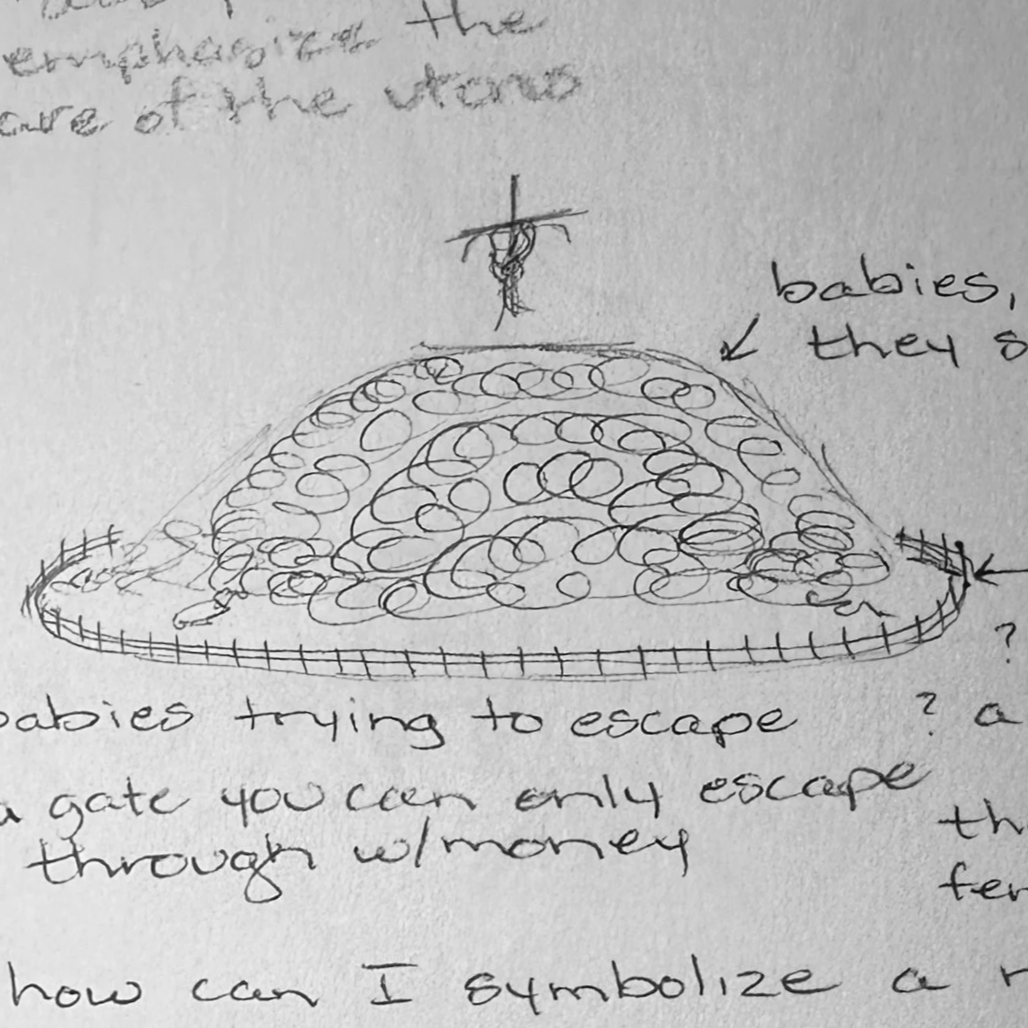 emphasize the
of the uterus
babies,
they s
?
babies trying to escape
? a
a gate you can only escape
through w/money
th
fer
how can I symbolize a r